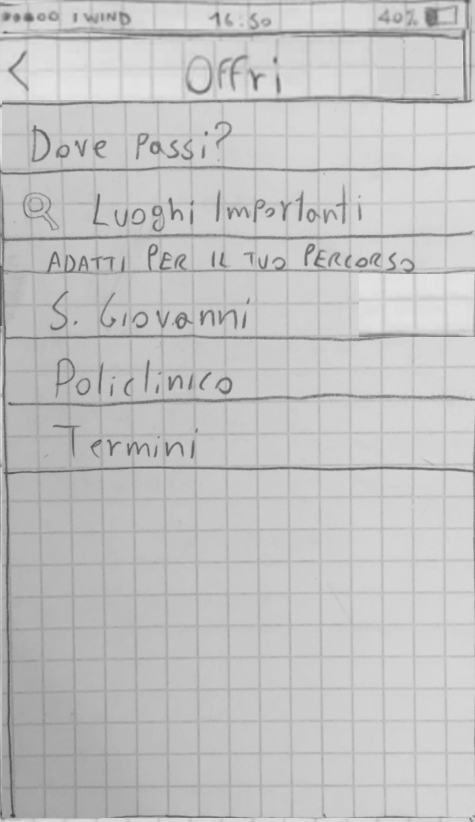 I WIND 16:50 40%
< Offri
Dove passi?
Luoghi Importanti
ADATTI PER IL TUO PERCORSO
S. Giovanni
Policlinico
Termini